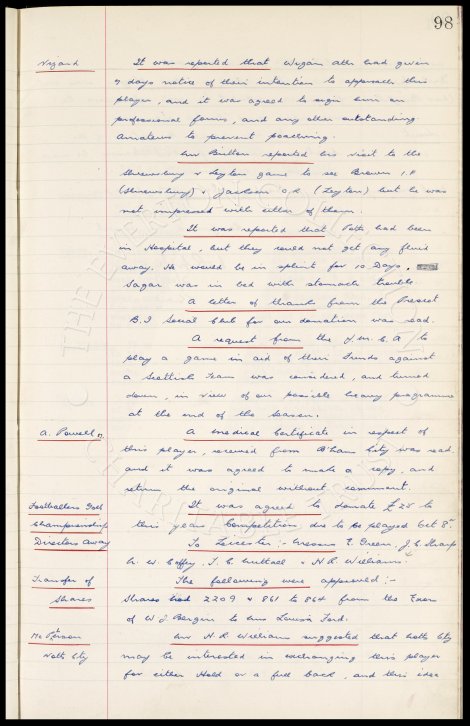 98
Nizard It was reported that Wigan Ath: had given
7 days notice of their intention to approach this
player, and it was agreed to sign him on
professional forms, and any other outstanding
Amateurs to prevent poaching.
Mr Britton reported his visit to the
Shrewsbury v Leyton game to see Brown I.F
(Shrewsbury) & Jackson O.R (Leyton) but he was
not impressed with either of them.
It was reported that Potts had been
in Hospital, but they could not get any fluid
away. He would be in splint for 10 Days.
Sagar was in bed with stomach trouble.
A letter of thanks from the Prescot
B.I Social Club for our donation was read.
A request from the Y.M.C.A to
play a game in aid of their funds against
a Scottish Team was considered, and turned
down, in view of our possible heavy programme
at the end of the season.
A. Powell A medical Certificate in respect of
this player, received from B'ham City was read
and it was agreed to make a copy, and
return the original without comment.
Footballers Golf It was agreed to Donate £25 to
Championship this years Competition due to be played Oct 8th
Directors Away To Leicester:- Messrs E. Green, J.C Sharp
W. Coffey, T.C. Nuttall & H.R. Williams.
Transfer of The following were approved:-
Shares Shares 2209 & 861 to 864 from the Exor
of W J Bergin to Mrs Louisa Ford.
Mr H.R Williams suggested that Notts City
Notts City may be interested in exchanging this player
for either Hold or a full back, and this idea